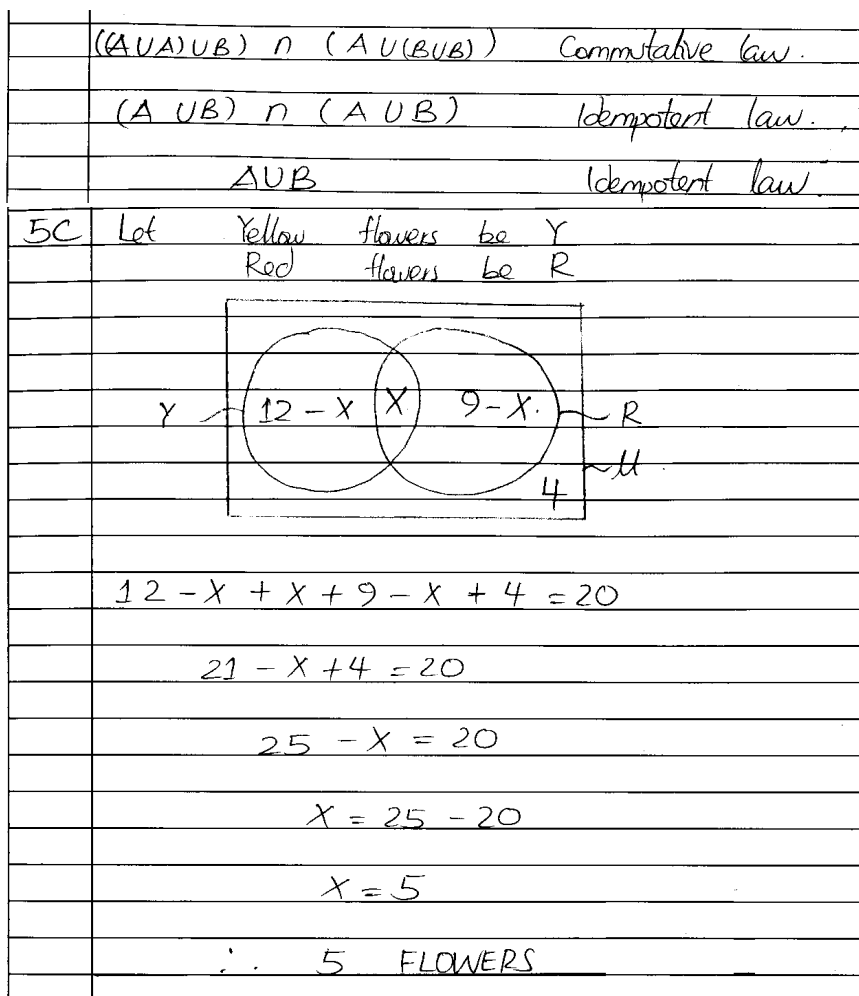 ((A∪A)∪B) ∩ (A∪(B∪B)) Commutative law.
(A ∪B) ∩ (A ∪B) Idempotent law.
A∪B Idempotent law
5C Let Yellow flowers be Y
Red flowers be R
Y 12 - X X 9 - X. R
μ
4
12 - X + X + 9 - X + 4 = 20
21 - X + 4 = 20
25 - X = 20
X = 25 - 20
X = 5
∴ 5 FLOWERS